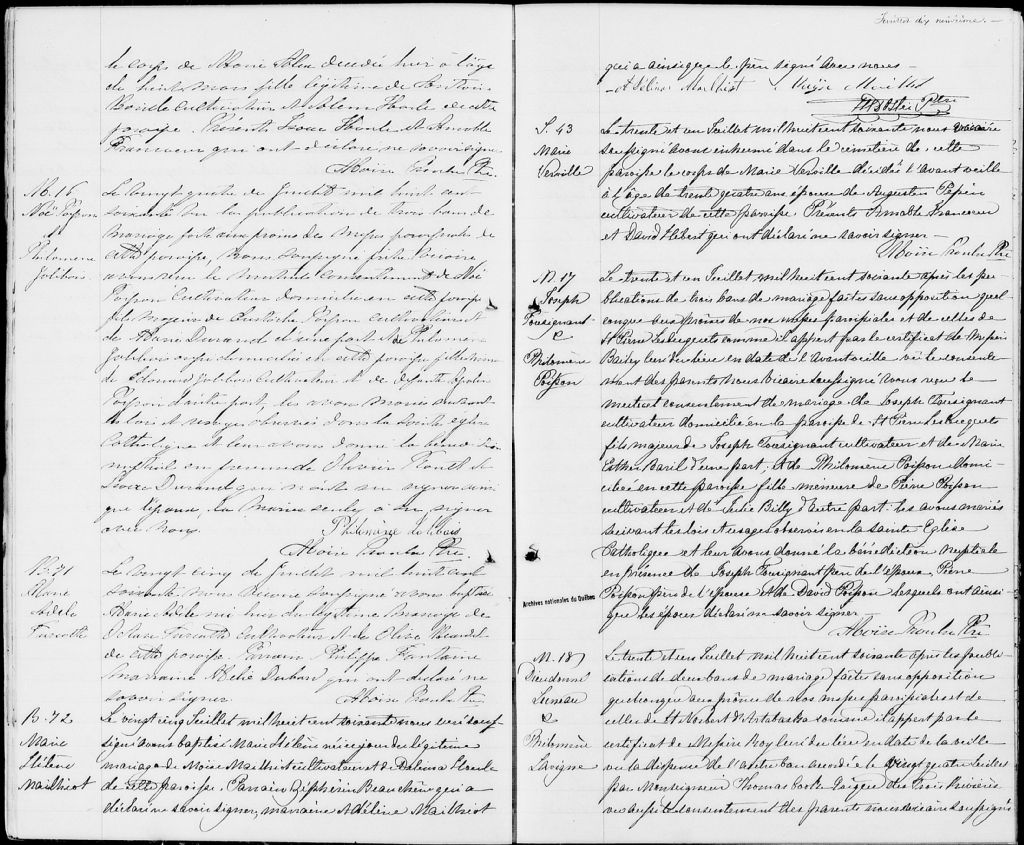 le corps de Marie décédée hier à l'âge
de huit mois fille légitime de
cultivateur de cette
paroisse. Présents Isaac et
qui ont déclaré ne savoir signer
Moïse Proulx Ptre
M. 16
Noé Poisson
&
Philomène
Jolibois
Le vingt quatre de Juillet mil huit cent
soixante vu la publication de trois bans de
mariage fait aux prônes des Messes paroissiales de
cette paroisse, Nous soussigné prêtre vicaire
avons reçu le mutuel consentement de Noé
Poisson cultivateur domicilié en cette paroisse
fils majeur de Poisson cultivateur et
de Marie Durand d'une part & de Philomène
Jolibois aussi domiciliée en cette paroisse fille mineure
de Edouard Jolibois cultivateur et de défunte
Poisson d'autre part, les avons mariés suivant
les lois et usages observés dans la Sainte église
Catholique et leur avons donné la bénédiction
nuptiale en présence de Olivier et de
Durand qui n'ont su signer ainsi
que l'époux, la mariée seule a su signer
avec nous
Philomène Jolibois
Moïse Proulx Ptre
B. 71
Marie
Adèle
Turcotte
Le vingt cinq de Juillet mil huit cent
soixante nous vicaire soussigné avons baptisé
Marie Adèle née hier du légitime mariage de
Octave Turcotte cultivateur et de Olive
de cette paroisse. Parrain Philippe Fontaine
marraine Dubord qui ont déclaré ne
savoir signer Moïse Proulx Ptre
B. 72
Marie
Hélène
Mailhiot
Le vingt cinq Juillet mil huit cent soixante nous curé sous-
signé avons baptisé Marie Hélène née ce jour du légitime
mariage de Moïse Mailhiot cultivateur et de Houle
de cette paroisse. Parrain Zéphirin Beauchêne qui a
déclaré ne savoir signer, marraine Adéline Mailhiot
Feuillet dix neuvième.
qui a ainsi que le père signé avec nous
Adéline Mailhiot Moyse Mailhot
Ptre
S. 43
Marie
Verville
Le trente et un Juillet mil huit cent soixante nous vicaire
soussigné avons inhumé dans le cimetière de cette
paroisse le corps de Marie Verville décédée l'avant veille
à l'âge de trente quatre ans épouse de Augustin Pepin
cultivateur de cette paroisse. Présents Francoeur
et David Hebert qui ont déclaré ne savoir signer
Moïse Proulx Ptre
M. 17
Joseph
Tousignant
&
Philomène
Poisson
Le trente et un Juillet, mil huit cent soixante après les pu-
blications de trois bans de mariage faites sans opposition quel-
conque aux prônes de nos messes paroissiales et de celles de
St Pierre Lesbecquets comme il appert par le certificat de Messire
Bailey leur curé en date de l'avant veille vu le consente-
ment des parents nous vicaire soussigné avons reçu le
mutuel consentement de mariage de Joseph Tousignant
cultivateur domicilié en la paroisse de St Pierre Lesbecquets
fils majeur de Joseph Tousignant cultivateur et de Marie
Esther Baril d'une part, et de Philomène Poisson domi-
ciliée en cette paroisse fille mineure de Pierre Poisson
cultivateur et de Julie Billy d'autre part: les avons mariés
suivant les lois et usages observés en la sainte Eglise
Catholique et leur avons donné la bénédiction nuptiale
en présence de Joseph Tousignant père de l'époux, Pierre
Poisson père de l'épouse et de David Poisson lesquels ont ainsi
que les époux déclaré ne savoir signer
Moïse Proulx Ptre
Archives nationales du Québec
M. 18
Dieudonné
&
Philomène
Lavigne
Le trente et un Juillet mil huit cent soixante après les publi-
cations de deux bans de mariage faites sans opposition
quelconque aux prônes de nos messes paroissiales et de
celles de St Norbert d'Artabaska comme il appert par le
certificat de Messire Roy leur curé en date de la veille
vu la dispense de l'autre ban accordée le vingt quatre Juillet
par Monseigneur Thomas Cooke Evêque des Trois Rivières
vu aussi le consentement des parents nous vicaire soussigné